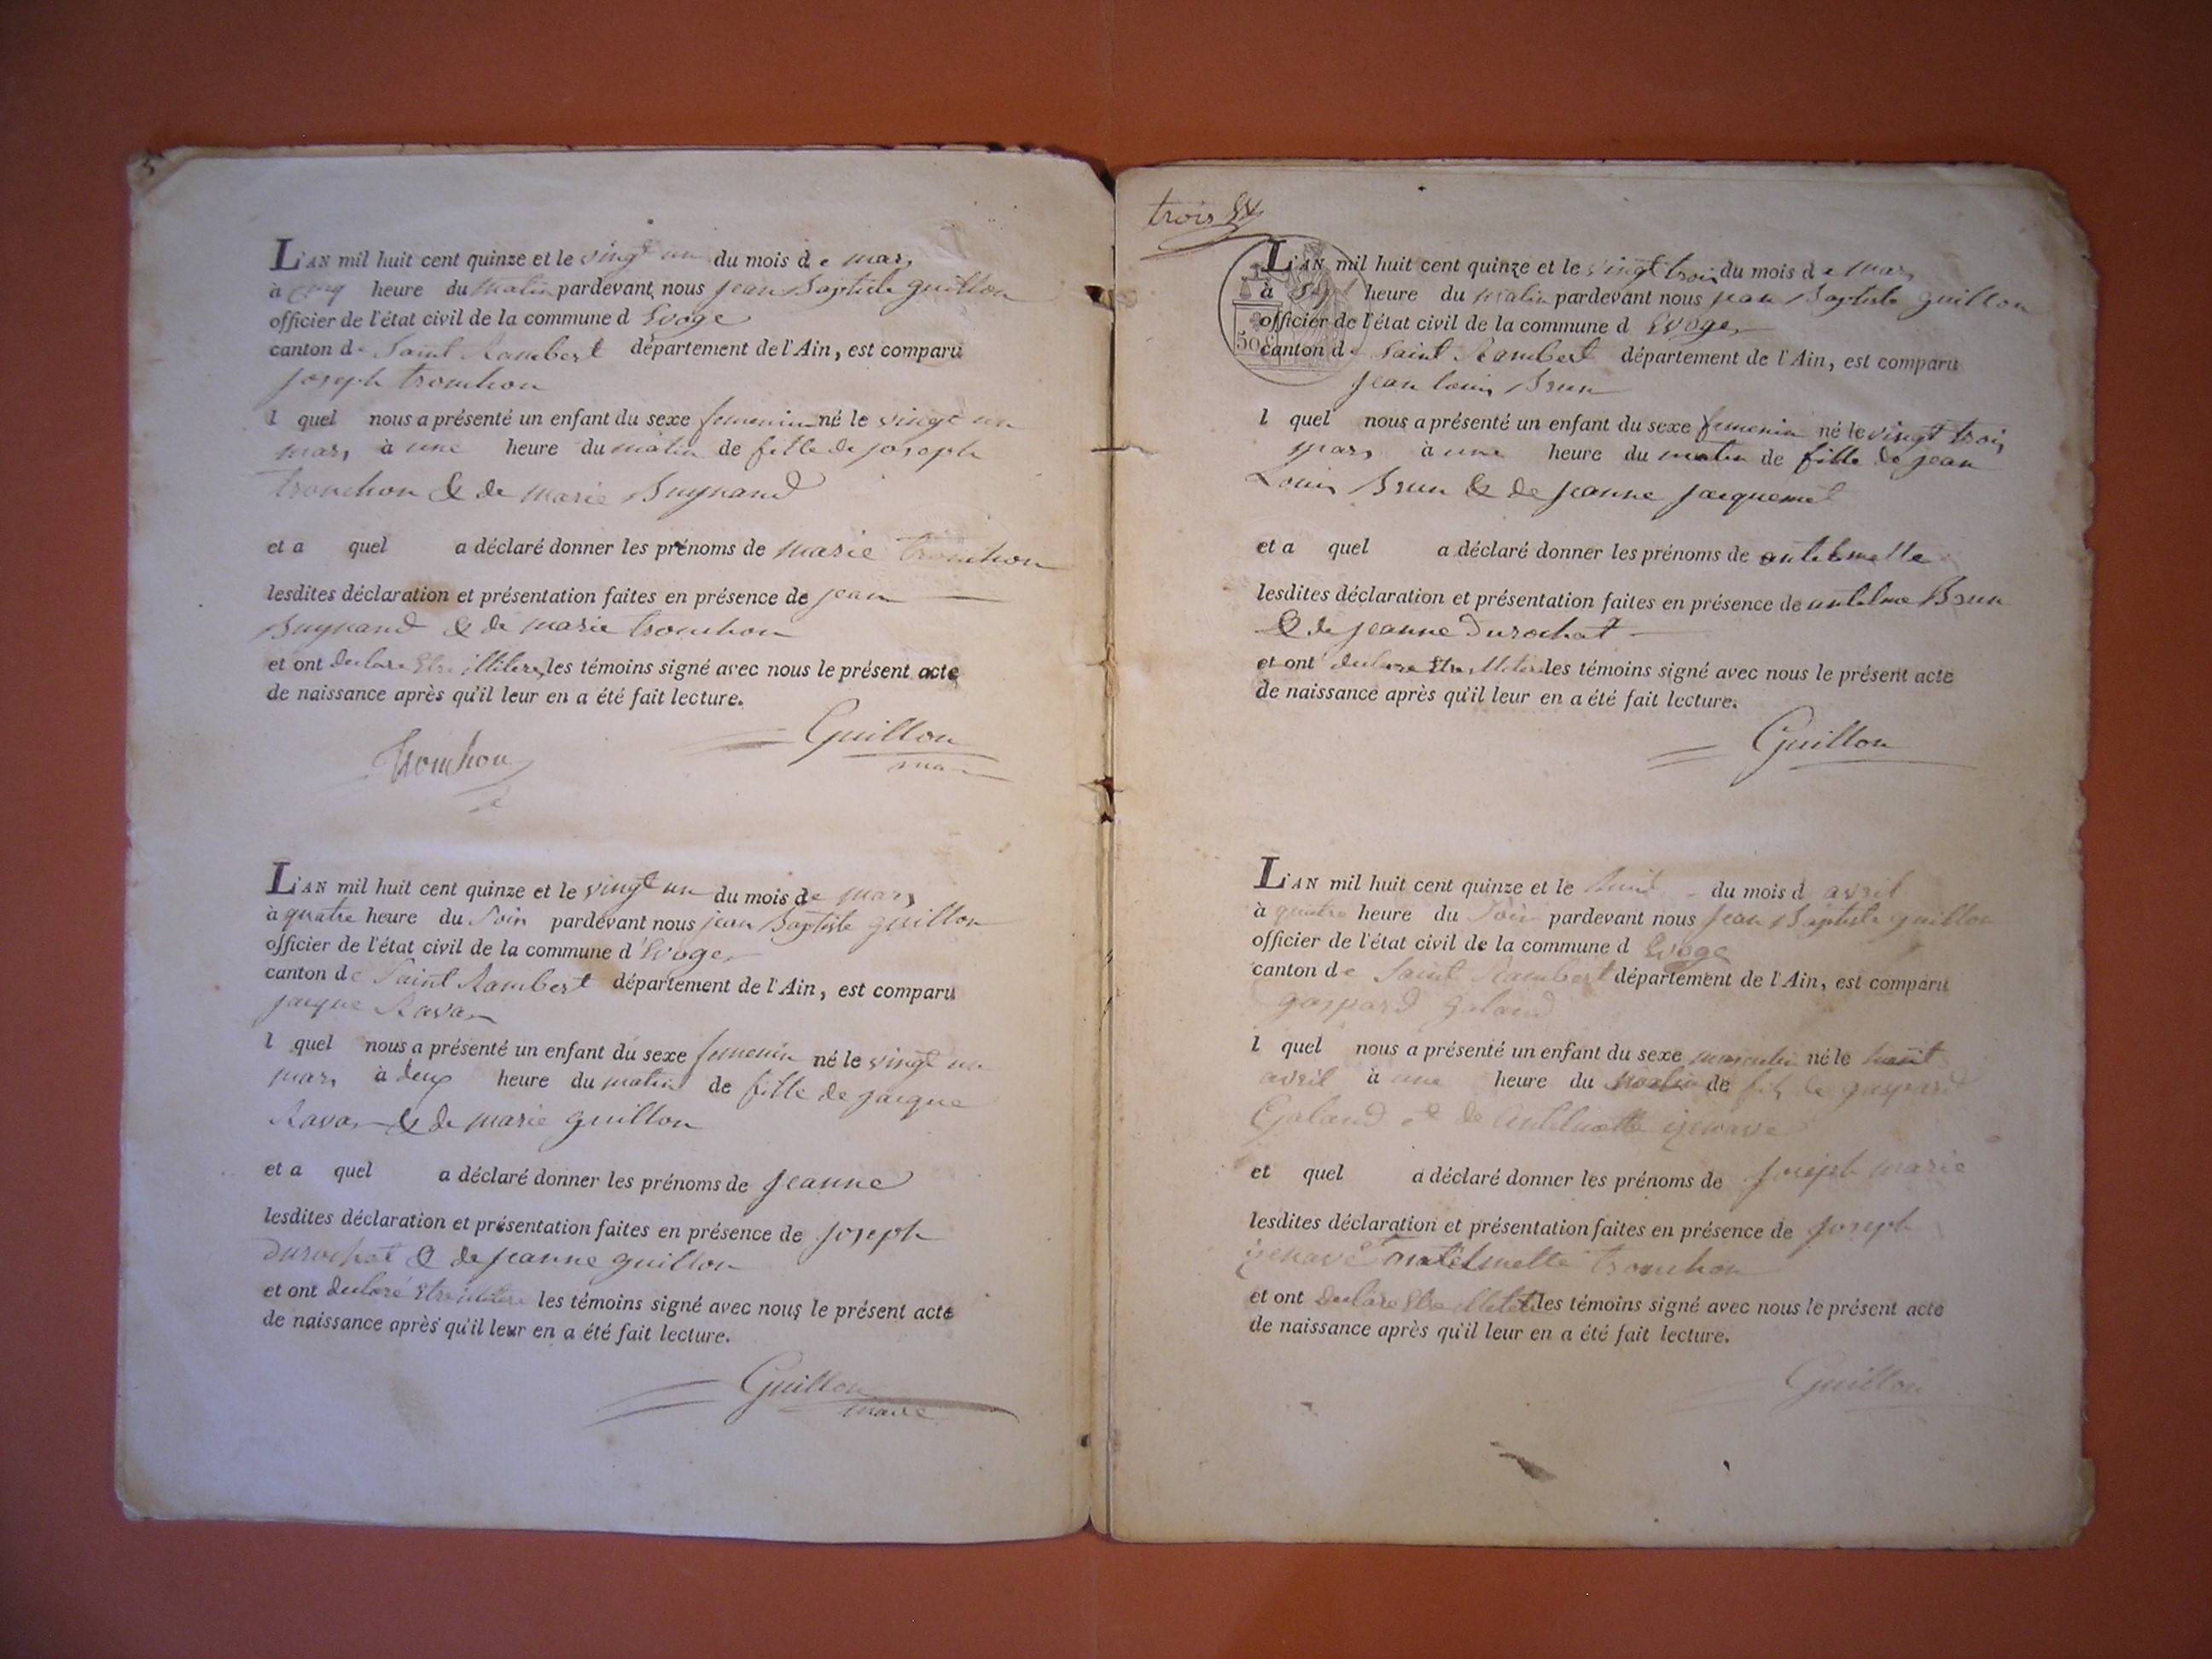 L'AN mil huit cent quinze et le vingt un du mois de mars
à cinq heure du matin pardevant nous jean Baptiste guillon
officier de l'état civil de la commune d Evoge
canton de Saint Rambert département de l'Ain, est comparu
joseph tronchon
l quel nous a présenté un enfant du sexe femenin né le vingt un
mars à une heure du matin de fille de joseph
tronchon & de marie Buynand
et a quel a déclaré donner les prénoms de marie tronchon
lesdites déclaration et présentation faites en présence de jean
Buynand & de marie tronchon
et ont declare Etre illiteres les témoins signé avec nous le présent acte
de naissance après qu'il leur en a été fait lecture.
Guillon
Tronchon
L'AN mil huit cent quinze et le vingt un du mois de mars
à quatre heure du Soir pardevant nous jean Baptiste guillon
officier de l'état civil de la commune d Evoges
canton de Saint Rambert département de l'Ain, est comparu
jacque Ravas
l quel nous a présenté un enfant du sexe femenin né le vingt un
mars à deux heure du matin de fille de jacque
Ravas & de marie guillon
et a quel a déclaré donner les prénoms de jeanne
lesdites déclaration et présentation faites en présence de joseph
Durochat & de jeanne guillon
et ont declaré Etre illitere les témoins signé avec nous le présent acte
de naissance après qu'il leur en a été fait lecture.
Guillon
maire
trois
L'AN mil huit cent quinze et le vingt trois du mois de mars
à Sept heure du matin pardevant nous jean Baptiste guillon
officier de l'état civil de la commune d Evoges
50 c
canton de Saint Rambert département de l'Ain, est comparu
jean louis Brun
l quel nous a présenté un enfant du sexe femenin né le vingt trois
mars à une heure du matin de fille de jean
Louis Brun & de jeanne jacquemet
et a quel a déclaré donner les prénoms de antelmette
lesdites déclaration et présentation faites en présence de antelme Brun
& de jeanne Durochat
et ont declare Etre illiteres les témoins signé avec nous le présent acte
de naissance après qu'il leur en a été fait lecture.
Guillon
L'AN mil huit cent quinze et le huit du mois d avril
à quatre heure du Soir pardevant nous jean Baptiste guillon
officier de l'état civil de la commune d Evoge
canton de Saint Rambert département de l'Ain, est comparu
gaspard galand
l quel nous a présenté un enfant du sexe masculin né le huit
avril à une heure du matin de fils de gaspard
Galand et de Antelmette
et quel a déclaré donner les prénoms de joseph marie
lesdites déclaration et présentation faites en présence de joseph
antelmette tronchon
et ont declare Etre les témoins signé avec nous le présent acte
de naissance après qu'il leur en a été fait lecture.
Guillon